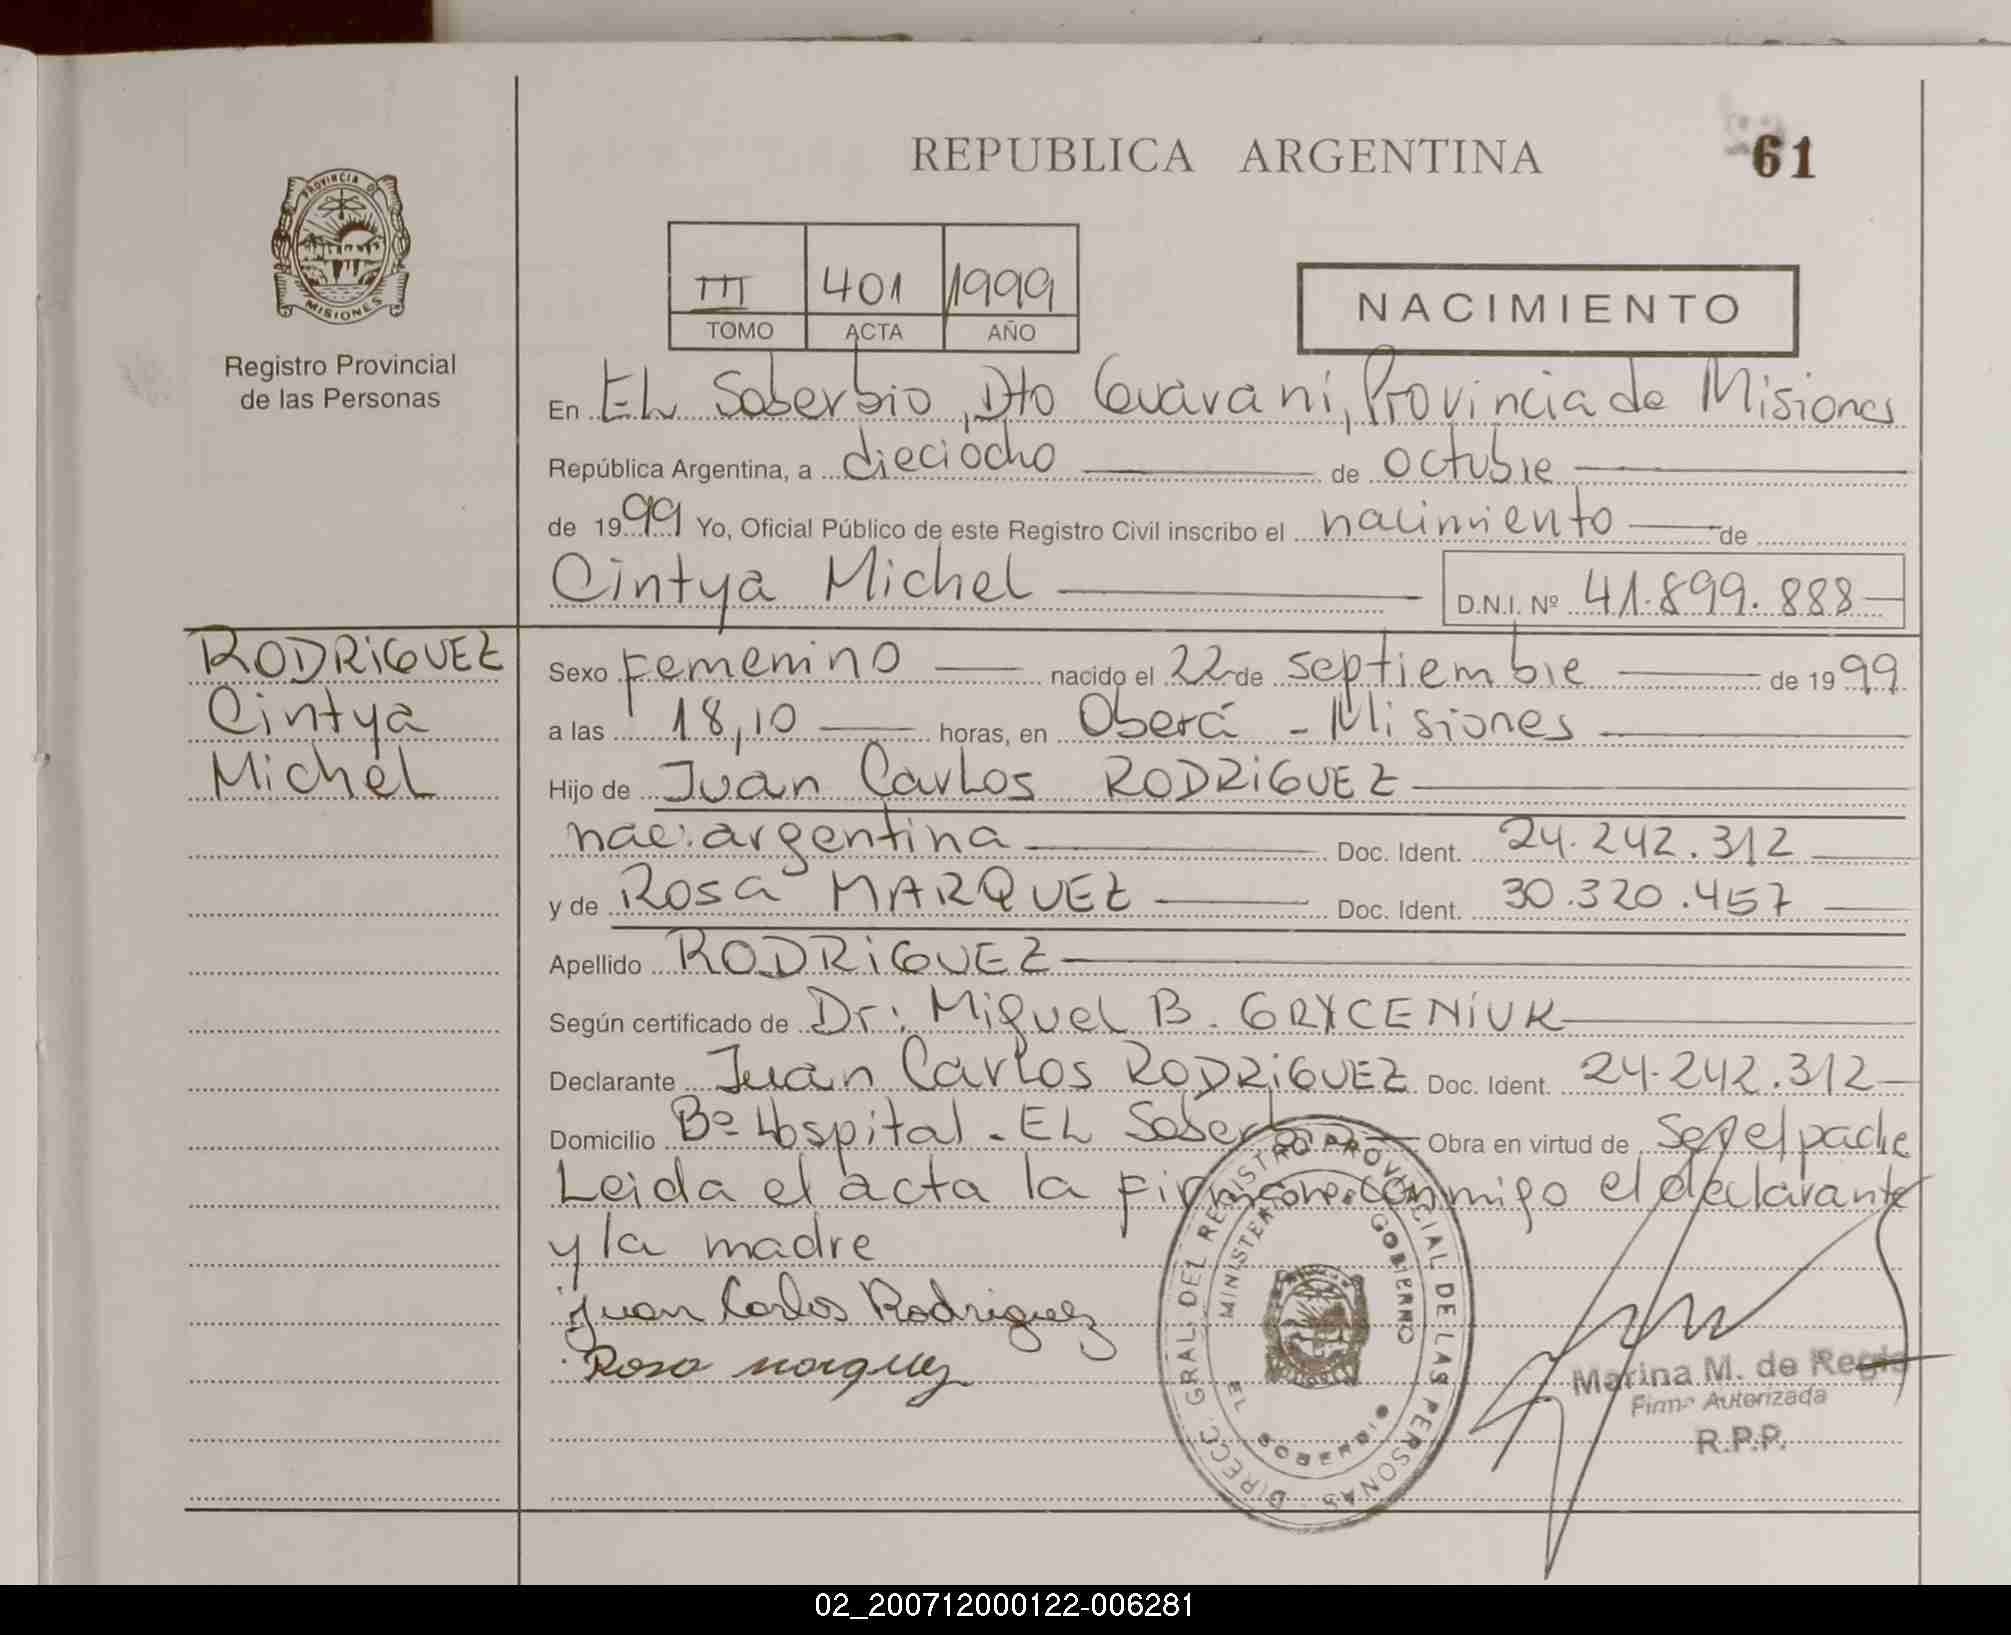 REPUBLICA ARGENTINA
61
PROVINCIA DE
MISIONES
Registro Provincial
de las Personas
III 401 1999
TOMO ACTA AÑO
NACIMIENTO
En EL Soberbio, Dto Guaraní, Provincia de Misiones
República Argentina, a dieciocho de octubre
de 1999 Yo, Oficial Público de este Registro Civil inscribo el nacimiento de
Cintya Michel
D.N.I. Nº 41.899.888
RODRIGUEZ
Cintya
Michel
Sexo Femenino nacido el 22 de septiembre de 1999
a las 18,10 horas, en Oberá - Misiones
Hijo de Juan Carlos RODRIGUEZ
nac. argentina Doc. Ident. 24.242.312
y de Rosa MARQUEZ Doc. Ident. 30.320.457
Apellido RODRIGUEZ
Según certificado de Dr. Miguel B. GRYCENIUK
Declarante Juan Carlos RODRIGUEZ Doc. Ident. 24.242.312
Domicilio Bº Hospital - EL Soberbio Obra en virtud de ser el padre
Leida el acta la firman conmigo el declarante
y la madre
Juan Carlos Rodriguez
Rosa marquez
DIRECC. GRAL. DEL REGISTRO PROVINCIAL DE LAS PERSONAS
MINISTERIO DE GOBIERNO
EL SOBERBIO
Marina M. de
Firma Autorizada
R.P.P.
02_200712000122-006281